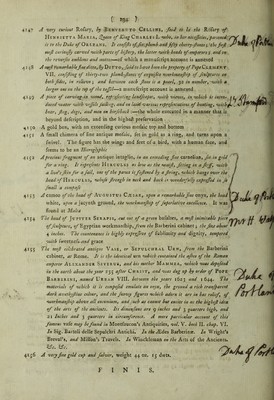 [ 194 ]
4147 A very curious Rosary, by BENVENUTO CELLINI, said to be the Rosary of
HENRIETTA MARIA, Queen of King CHARLES I. who, in her necessities, pawned
it to the Duke of ORLEANS. It consists of six plumb and fifty cherry-stones; the first
most curiously carved with parts of history, the latter with heads of emperors; and on
the reversible emblems and ... : which a manuscript account is annexed
4148 A most remarkable fine ditto, by DITTO, said to have been the property of Pope CLEMENT
VII. consisting of thirty-two plumb-stones of exquisite workmanship of sculptures on
both sides, in relievo; and between each stone is a pearl, 32 in number, with a
larger one at the top of the tassel—a manuscript account is annexed
4149 A piece of carvings in wood, representing landscapes, with waters, in which is intro-
duced water with vessels sailing, and on land various representations of hunting, with
bear, stag, dogs, and men on horseback, the whole executed in a manner that is
beyond description, and in the highest preservation
4150 A gold box, with an extending curious mosaic top and bottom
4151 A small chimera of fine antique mosaic, set in gold, in a ring, and turns upon a
swivel. The figure has the wings and feet of a bird, with a human face, and
seems to be an Hieroglyphic
4152 A precious fragment of an antique intaglio, in an exceeding fine carnelian, set in gold
for a ring. It represents HERCULES as low as the mouth, sitting in a shell, with
a lion's skin for a sail, one of the paws is fastened by a string, which hangs over the
head of HERCULES, which though in such and back is wonderfully expressed in so
small a compass
4153 A cameo of the head of AUGUSTUS CAESAR, upon a remarkable fine onyx, the head
white, upon a jacynth ground, the workmanship of superlative excellence. It was
found at Malta
4154 The head of JUPITER SERAPIS, cut out of green basaltes, a most inimitable piece
of sculpture, of Egyptian workmanship, from the Barberini cabinet; the size about
4 inches. The countenance is highly expressive of sublimity and dignity, tempered
with sweetness and grace
4155 The most celebrated antique VASE, or SEPULCHRAL URN, from the Barberini
cabinet, at Rome. It is the identical urn which contained the ashes of the Roman
emperor ALEXANDER SEVERUS, and his mother MAMMEA, which was deposited
in the earth about the year 235 after CHRIST, and was dug up by order of Pope
BARBERINI, named URBAN VIII. between the years 1623 and 1644. The
materials of which it is composed emulate an onyx, the ground a rich transparent
dark amethystine colour, and the snowy figures which adorn it are in bas relief, of
workmanship above all encomium, and such as cannot but excite us to the highest idea
of the arts of the ancients. Its dimensions are 9 inches and 3 quarters high, and
21 inches and 3 quarters in circumference. A more particular account of this
famous vase may be found in Montfaucon's Antiquities, vol. V. book II. chap. VI.
In Sig. Bartoli delle Sepulchri Antichi. In the Aedes Barberinae. In Wright's
Breval's, and Misson's Travels. In Winckleman on the Arts of the Ancients.
&c. &c.
4156 A very fine gold cup and saltver, weight 44 oz. 15 dwts.
FINIS.
Duke of Portland
Duke of Portland
Duke of Portland